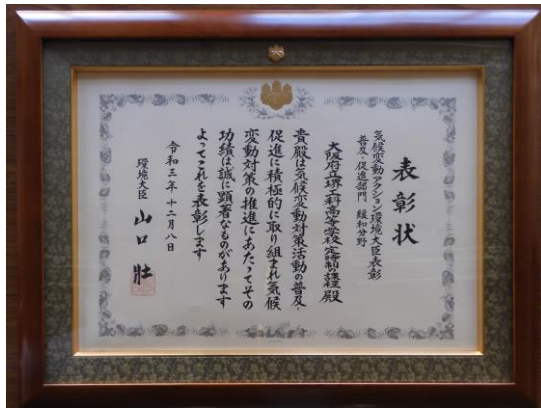 表彰状
気候変動アクション環境大臣表彰
普及・促進部門　緩和分野
大阪府立堺工科高等学校定時制の課程 殿
貴殿は気候変動対策活動の普及・
促進に積極的に取り組まれ気候
変動対策の推進にあたってその
功績は誠に顕著なものがあります
よってこれを表彰します
令和三年十二月八日
環境大臣 山口 壯